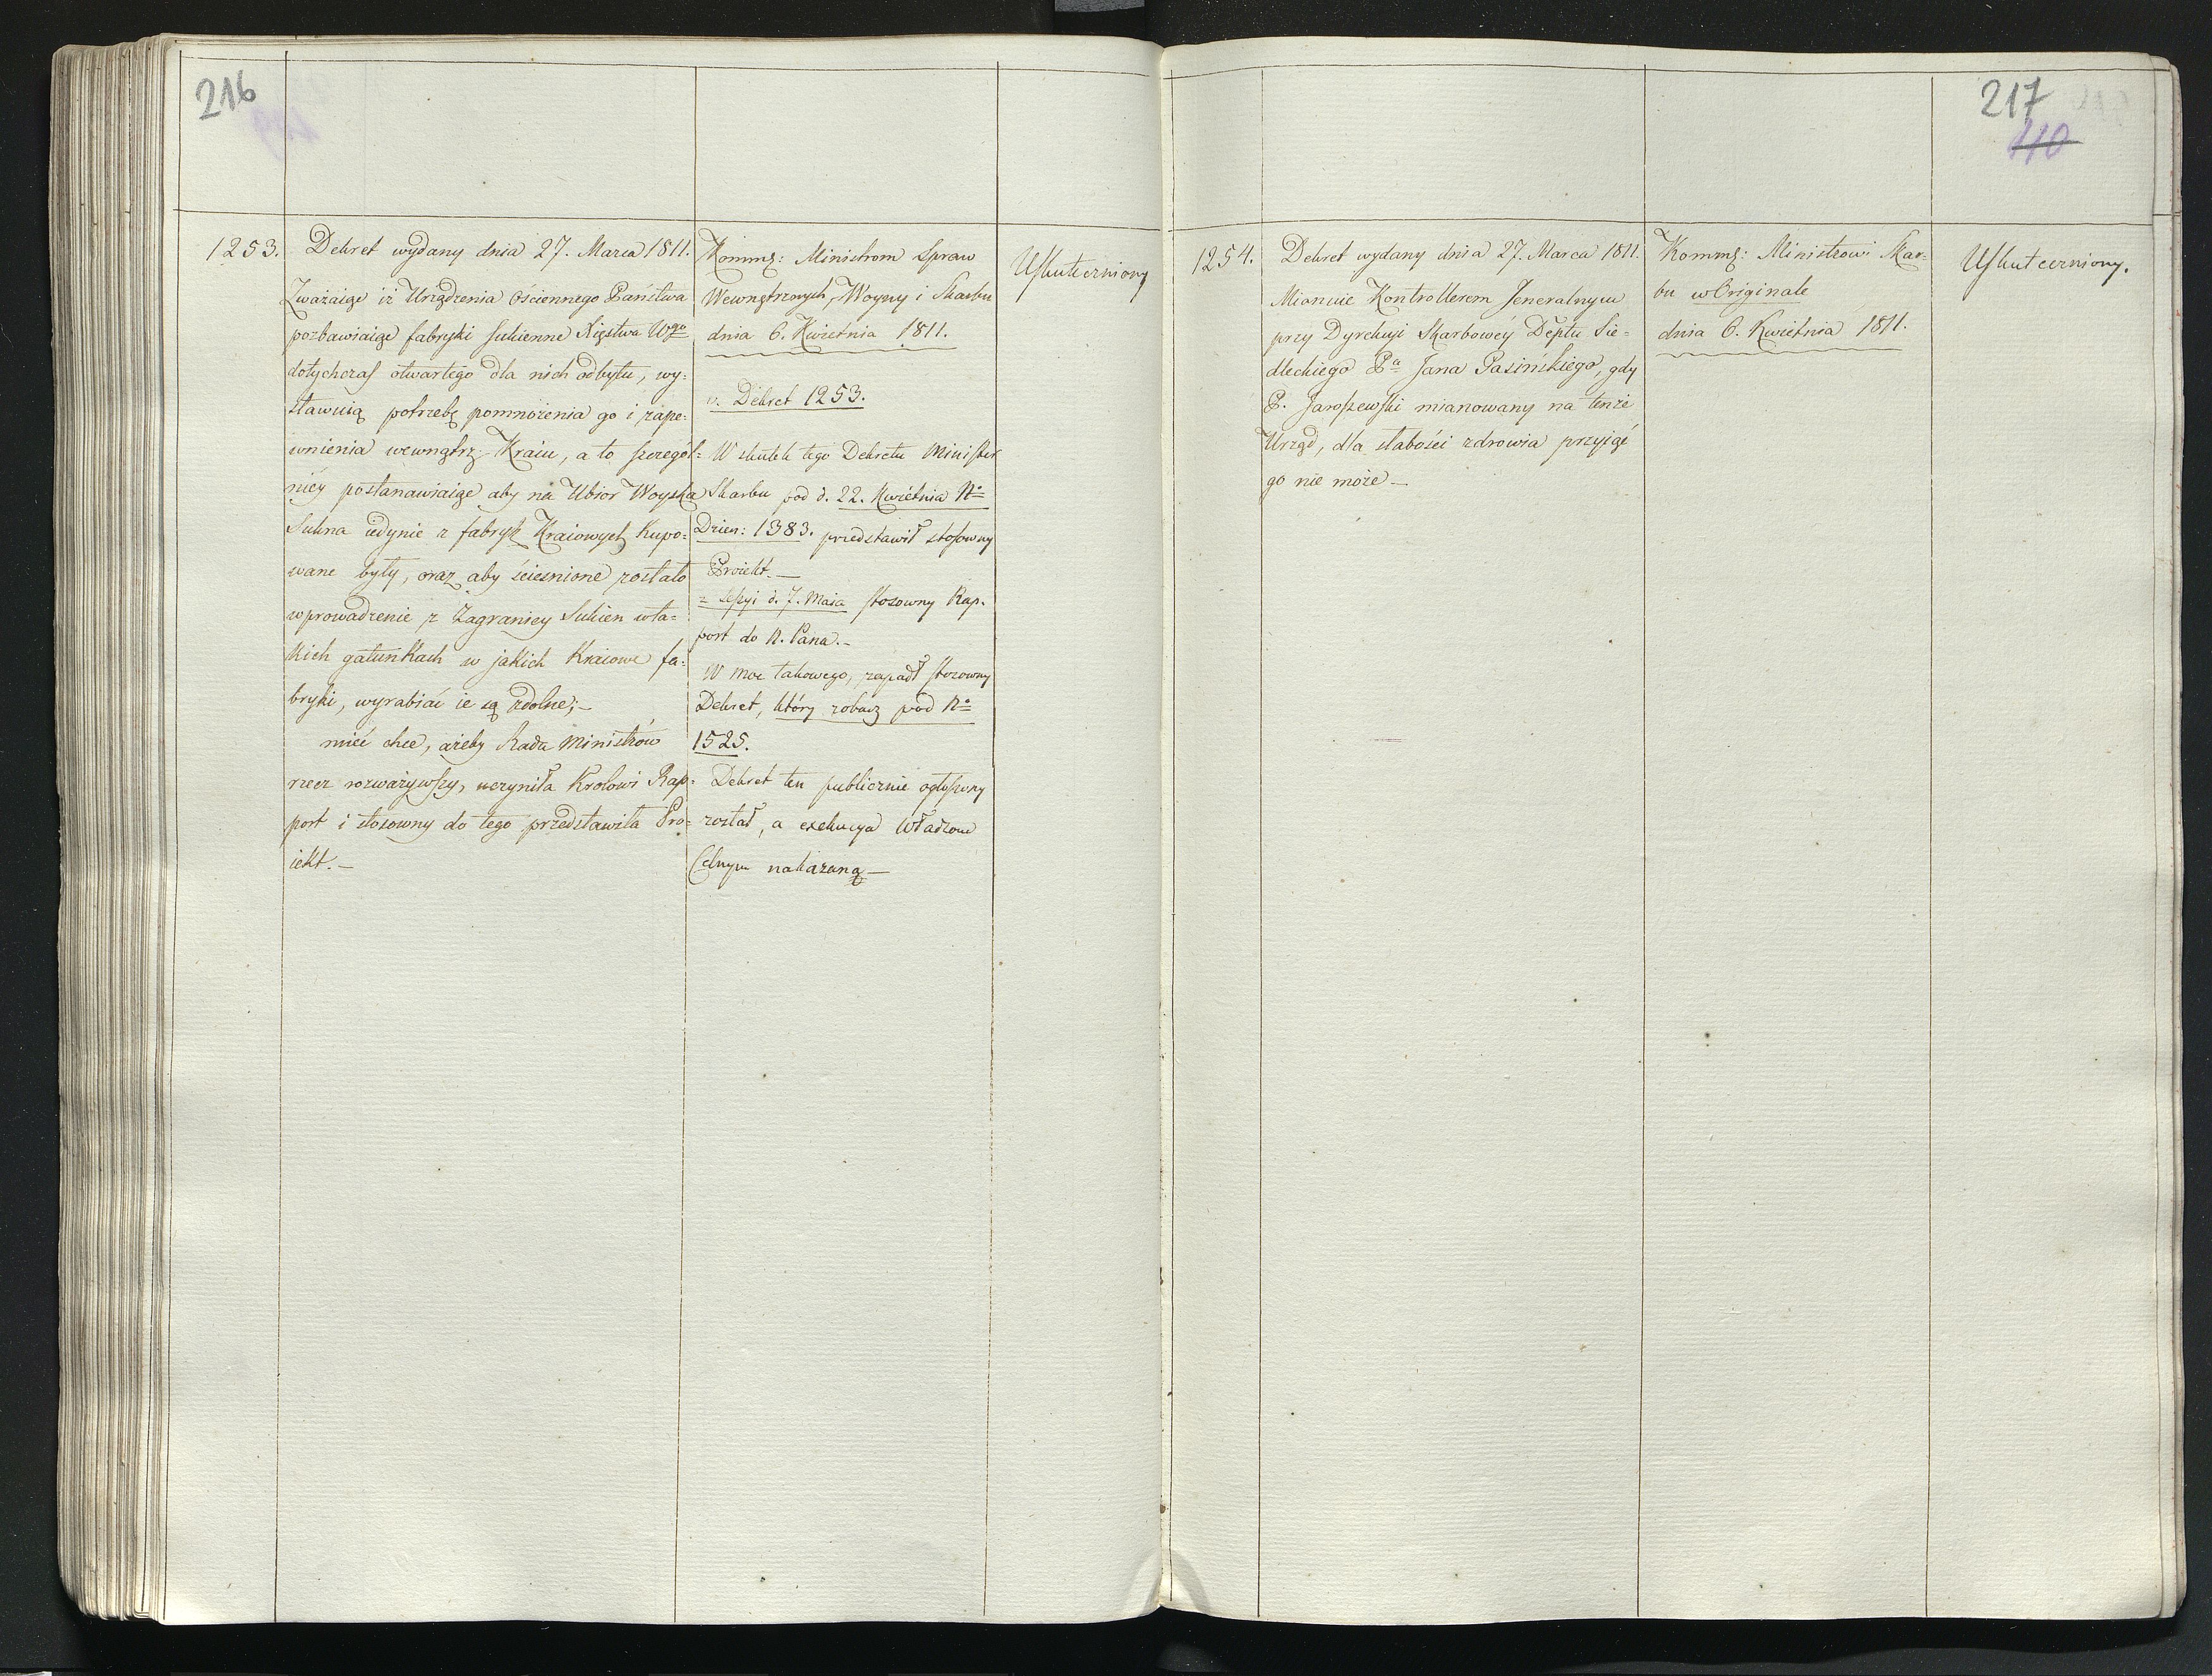 216
1253.
Dekret wydany dnia 27. Marca 1811.
Zważaiąc iż Urządzenia Ościennego Państwa
pozbawiaiąc fabryki sukienne Xięstwa Wgo
dotychczas otwartego dla nich odbytu, wy=
stawuią potrzebę pomnożenia go i zape=
wnienia wewnątrz Kraiu, a to szczegól=
niéy postanawiaiąc aby na Ubior Woyska
Sukna iedynie z fabryk Kraiowych kupo=
wane były, oraz aby ścieśnione zostało
wprowadzenie z Zagranicy Sukien w ta=
kich gatunkach w jakich Kraiowe fa=
bryki, wyrabiać ie są zdolne;—
mieć chce, ażeby Rada Ministrów
rzecz rozważywszy, uczyniła Krolowi Rap=
port i stosowny do tego przedstawiła Pro=
iekt.—
Kommę: Ministrom Spraw
Wewnętrznych, Woyny i Skarbu
dnia 6. Kwietnia 1811.
v. Dekret 1253.
W skutek tego Dekretu Minister
Skarbu pod d. 22. Kwietnia No
Dzien: 1383. przedstawił stosowny
Proiekt.—
z Sessyi d. 7. Maia stosowny Rap.
port do N. Pana.—
W moc takowego, zapadł stosowny
Dekret, który zobacz pod No
1525.
Dekret ten publicznie ogłoszony
został, a exekucya Władzom
Celnym nakazaną—
Uskuteczniony
217
110
1254.
Dekret wydany dnia 27. Marca 1811.
Mianuie Kontrollerem Jeneralnym
przy Dyrekcyi Skarbowéy Deptu Sie=
dleckiego Pa Jana Pasińskiego, gdy
P. Jaroszewski mianowany na tenże
Urząd, dla słabości zdrowia przyjąć
go nie może—
Kommę: Ministrowi Skar=
bu w Originale
dnia 6. Kwietnia 1811.
Uskuteczniony.